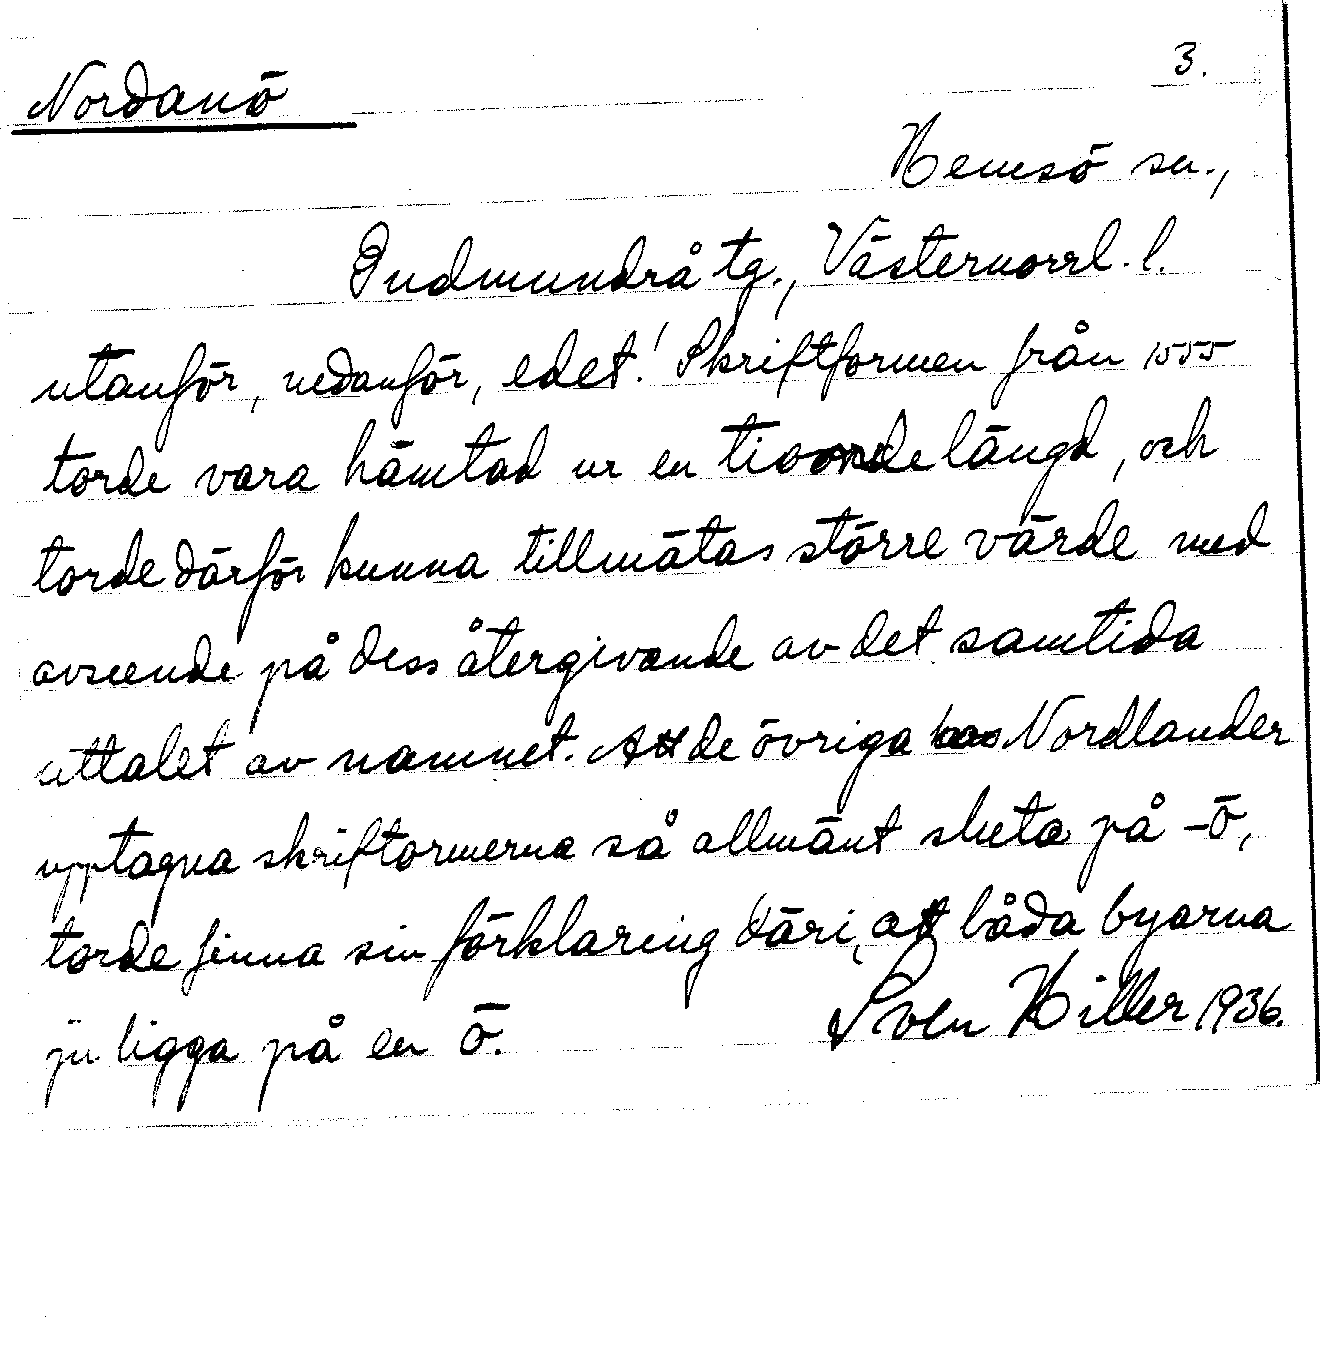 3.
Nordanö
Hemsö sn.,
Gudmundrå tg., Västernorrl. l.
utanför, nedanför, edet! Skriftformen från 1555
torde vara hämtad ur en tiondelängd, och
torde därför kunna tillmätas större värde med
avseende på dess återgivande av det samtida
uttalet av namnet. Att de övriga hos Nordlander
upptagna skriftormerna så allmänt sluta på -ö,
torde finna sin förklaring däri, att båda byarna
ju ligga på en ö. Sven Hiller 1936.